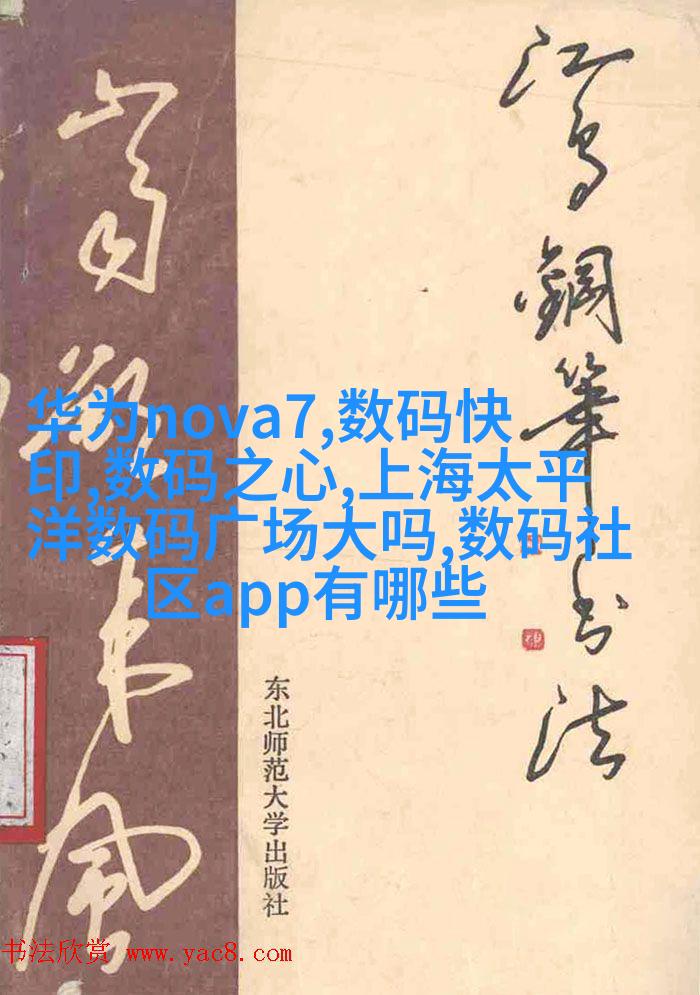 江鸟鋼筆书法
山雨欲来风
华为nova7,数码快
印,数码之心,上海太平
洋数码广场大吗,数码社
区app有哪些
东北师范大学出版社
书法欣赏 www.yac8.com